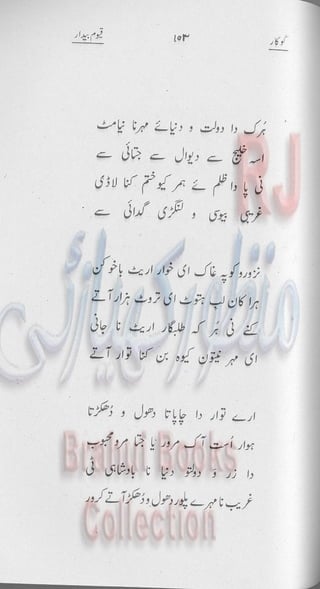 گوکار ۱۵۳ قیوم بیدار
ہُرک دا دولت و دنیائے مہرنا نیامٹ
اسہ خلیج سے دیوال سے جتائی سے
نی پا دا ظلم ئے ہمر کیو ختم کنا لاڈی
غریبی بیوسی و لنگڑی گدائی سے
نزوروکوپہ غاک ای خوار اریٹ باخوکن
ہرا کان لب ہتوٹ ای تروٹ ہزار آتے
کنے نی ہُر کہ طلبگار اریٹ نا جانی
ای مہر نیتون کیوہ بن کنا توار آتے
ارے توار دا چاپاتا دھول و دُھکڑتا
ہوار اُست آک مرور یا جتا مرو محبوب
دا زر و دولتو دنیا نا بادشاہی ٹی
غریب نا مہرے پلور دھول و دُھکڑ آتے کرور
RJ
Brahui Books
Collection